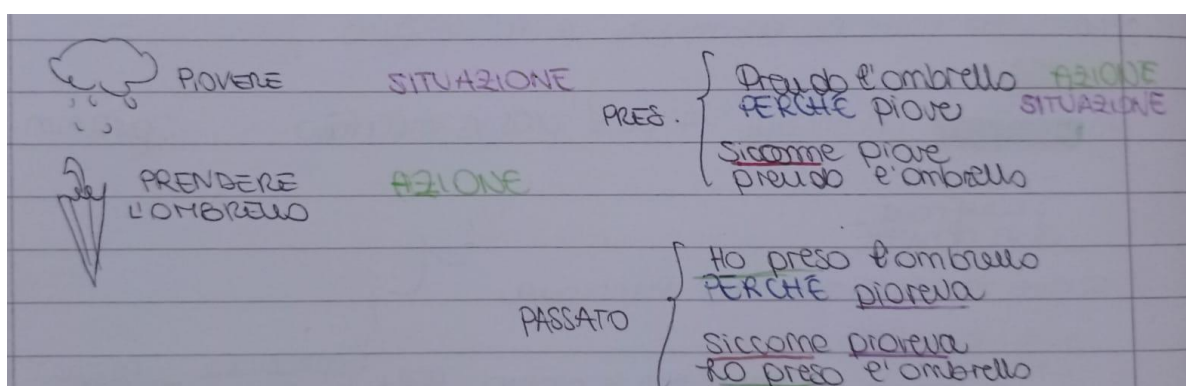 PIOVERE SITUAZIONE
PRENDERE AZIONE
L'OMBRELLO
PRES.
Prendo l'ombrello AZIONE
PERCHÉ piove SITUAZIONE
siccome piove
prendo l'ombrello
PASSATO
Ho preso l'ombrello
PERCHÉ pioveva
siccome pioveva
ho preso l'ombrello